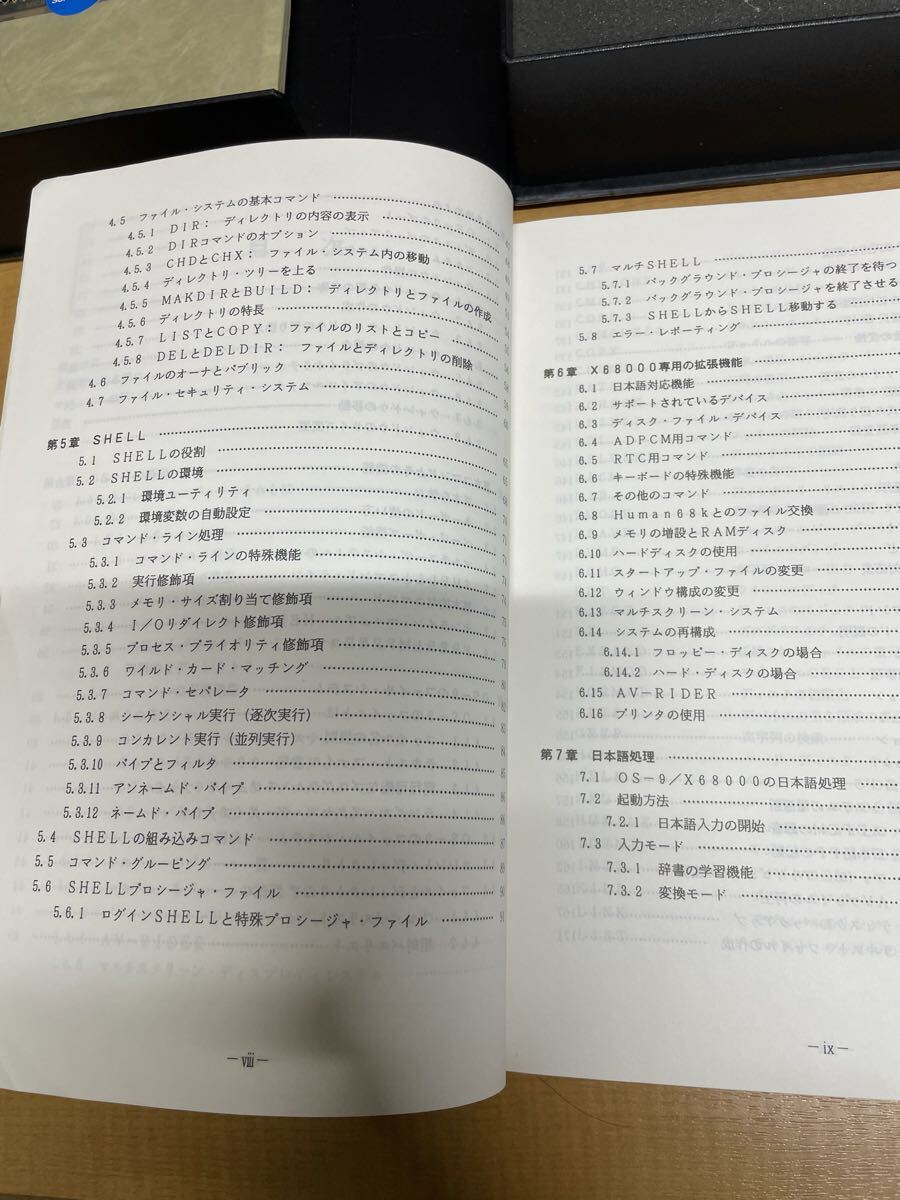 4.5 ファイル・システムの基本コマンド
4.5.1 DIR: ディレクトリの内容の表示
4.5.2 DIRコマンドのオプション
4.5.3 CHDとCHX: ファイル・システム内の移動
4.5.4 ディレクトリ・ツリーを上る
4.5.5 MAKDIRとBUILD: ディレクトリとファイルの作成
4.5.6 ディレクトリの特長
4.5.7 LISTとCOPY: ファイルのリストとコピー
4.5.8 DELとDELDIR: ファイルとディレクトリの削除
4.6 ファイルのオーナとパブリック
4.7 ファイル・セキュリティ・システム
第5章 SHELL
5.1 SHELLの役割
5.2 SHELLの環境
5.2.1 環境ユーティリティ
5.2.2 環境変数の自動設定
5.3 コマンド・ライン処理
5.3.1 コマンド・ラインの特殊機能
5.3.2 実行修飾項
5.3.3 メモリ・サイズ割り当て修飾項
5.3.4 I/Oリダイレクト修飾項
5.3.5 プロセス・プライオリティ修飾項
5.3.6 ワイルド・カード・マッチング
5.3.7 コマンド・セパレータ
5.3.8 シーケンシャル実行(逐次実行)
5.3.9 コンカレント実行(並列実行)
5.3.10 パイプとフィルタ
5.3.11 アンネームド・パイプ
5.3.12 ネームド・パイプ
5.4 SHELLの組み込みコマンド 87
5.5 コマンド・グルーピング 89
5.6 SHELLプロシージャ・ファイル 90
5.6.1 ログインSHELLと特殊プロシージャ・ファイル 91
－ⅷ－
5.7 マルチSHELL
5.7.1 バックグラウンド・プロシージャの終了を待つ
5.7.2 バックグラウンド・プロシージャを終了させる
5.7.3 SHELLからSHELL移動する
5.8 エラー・レポーティング
第6章 X68000専用の拡張機能
6.1 日本語対応機能
6.2 サポートされているデバイス
6.3 ディスク・ファイル・デバイス
6.4 ADPCM用コマンド
6.5 RTC用コマンド
6.6 キーボードの特殊機能
6.7 その他のコマンド
6.8 Human68kとのファイル交換
6.9 メモリの増設とRAMディスク
6.10 ハードディスクの使用
6.11 スタートアップ・ファイルの変更
6.12 ウィンドウ構成の変更
6.13 マルチスクリーン・システム
6.14 システムの再構成
6.14.1 フロッピー・ディスクの場合
6.14.2 ハード・ディスクの場合
6.15 AV－RIDER
6.16 プリンタの使用
第7章 日本語処理
7.1 OS－9/X68000の日本語処理
7.2 起動方法
7.2.1 日本語入力の開始
7.3 入力モード
7.3.1 辞書の学習機能
7.3.2 変換モード
－ⅸ－